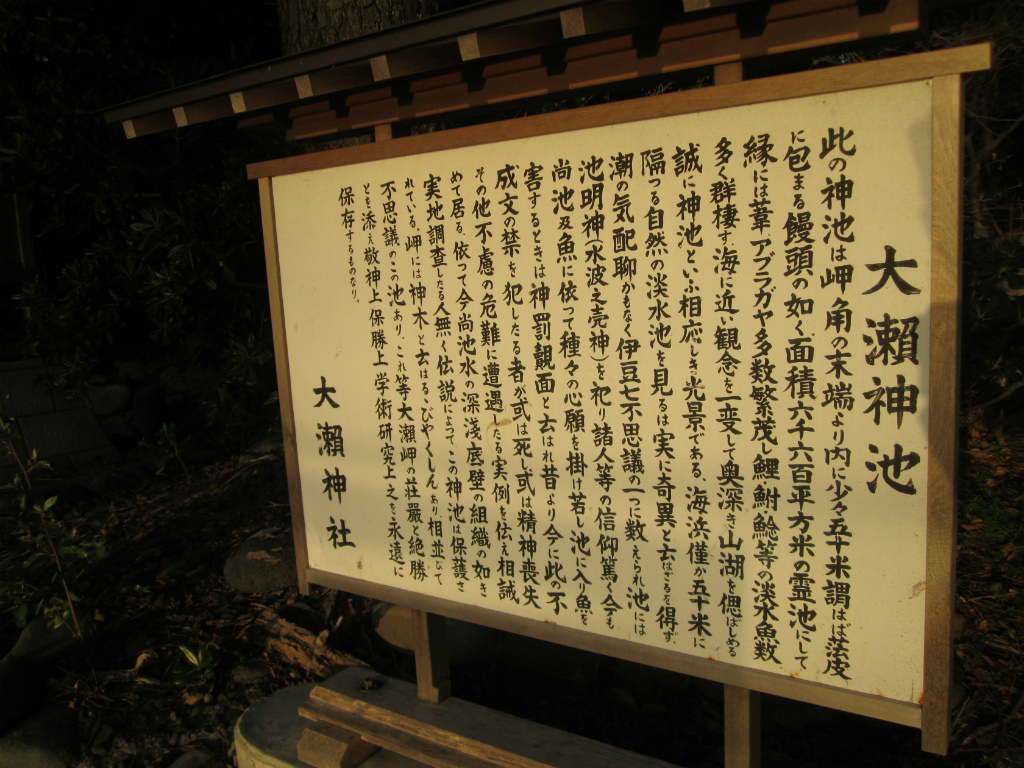 大瀬神池
此の神池は岬角の末端より内に少々五十米謂はば法皮
に包まる饅頭の如く、面積六千六百平方米の霊池にして
縁には葦アブラガヤ多数繁茂し鯉鮒鯰等の淡水魚数
多く群棲す、海に近い観念を一変して奥深き山湖を偲ばしめる
誠に神池といふ相応しき光景である、海浜僅か五十米に
隔つる自然の淡水池を見るは実に奇異と云はざるを得ず、
潮の気配聊かもなく伊豆七不思議の一つに数えられ池には
池明神(水波之売神)を祀り諸人等の信仰篤く今も
尚池及魚に依って種々の心願を掛け若し池に入り魚を
害するときは神罰覿面と云はれ昔より今に此の不
成文の禁を犯したる者が或は死し或は精神喪失
その他不慮の危難に遭遇したる実例を伝え相誡
めて居る、依って今尚池水の深浅底壁の組織の如き
実地調査したる人無く伝説によって、この神池は保護さ
れている、岬には神木と云はる、びやくしん、あり相並びて
不思議のこの池あり、これ等大瀬岬の荘厳と絶勝
とを添え敬神上保勝上学術研究上之を永遠に
保存するものなり、
大瀬神社